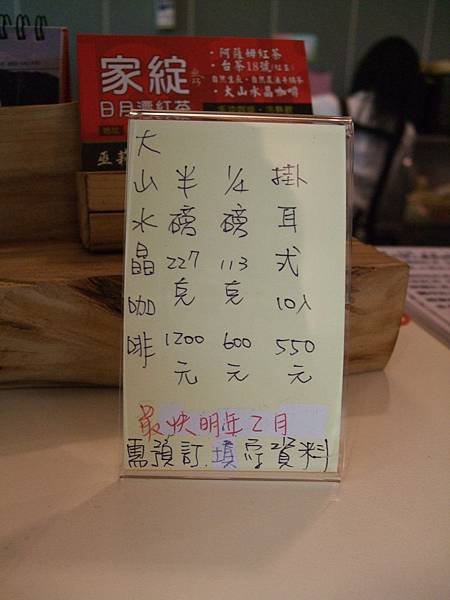 家綻
日月潭紅茶
·阿薩姆紅茶
·台茶18號(紅茶)
·大山水晶咖啡
大山水晶咖啡
半磅227克1200元
1/4磅113克600元
掛耳式10入550元
最快明年2月
需預訂.填寫資料